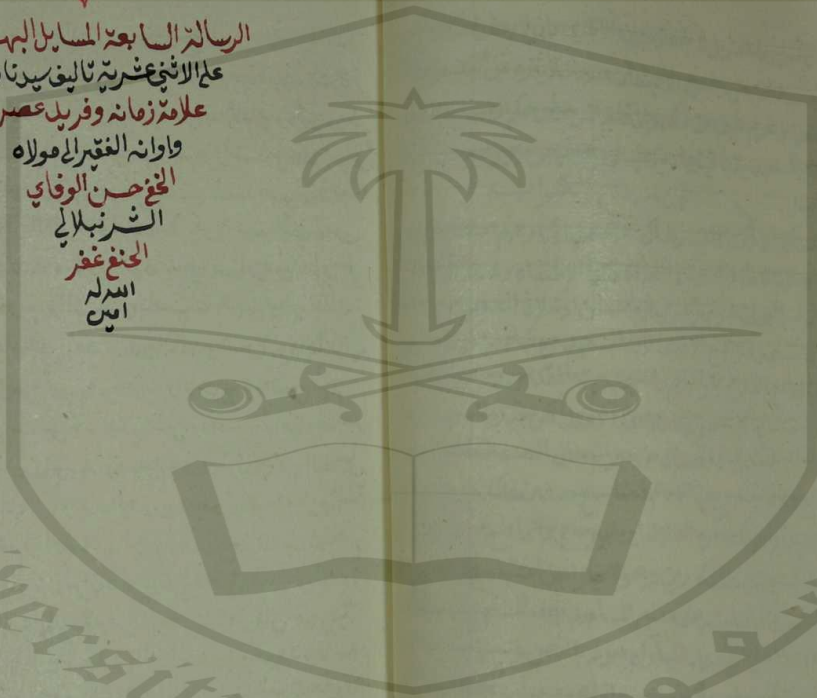 ٧
الرسالة السابعة المسايل البه
على الاثني عشرية تاليف سيدنا
علامة زمانه وفريد عصر
واوانه الفقير الى مولاه
الخفي حسن الوفاي
الشرنبلالي
الحنفي غفر
الله له
امين